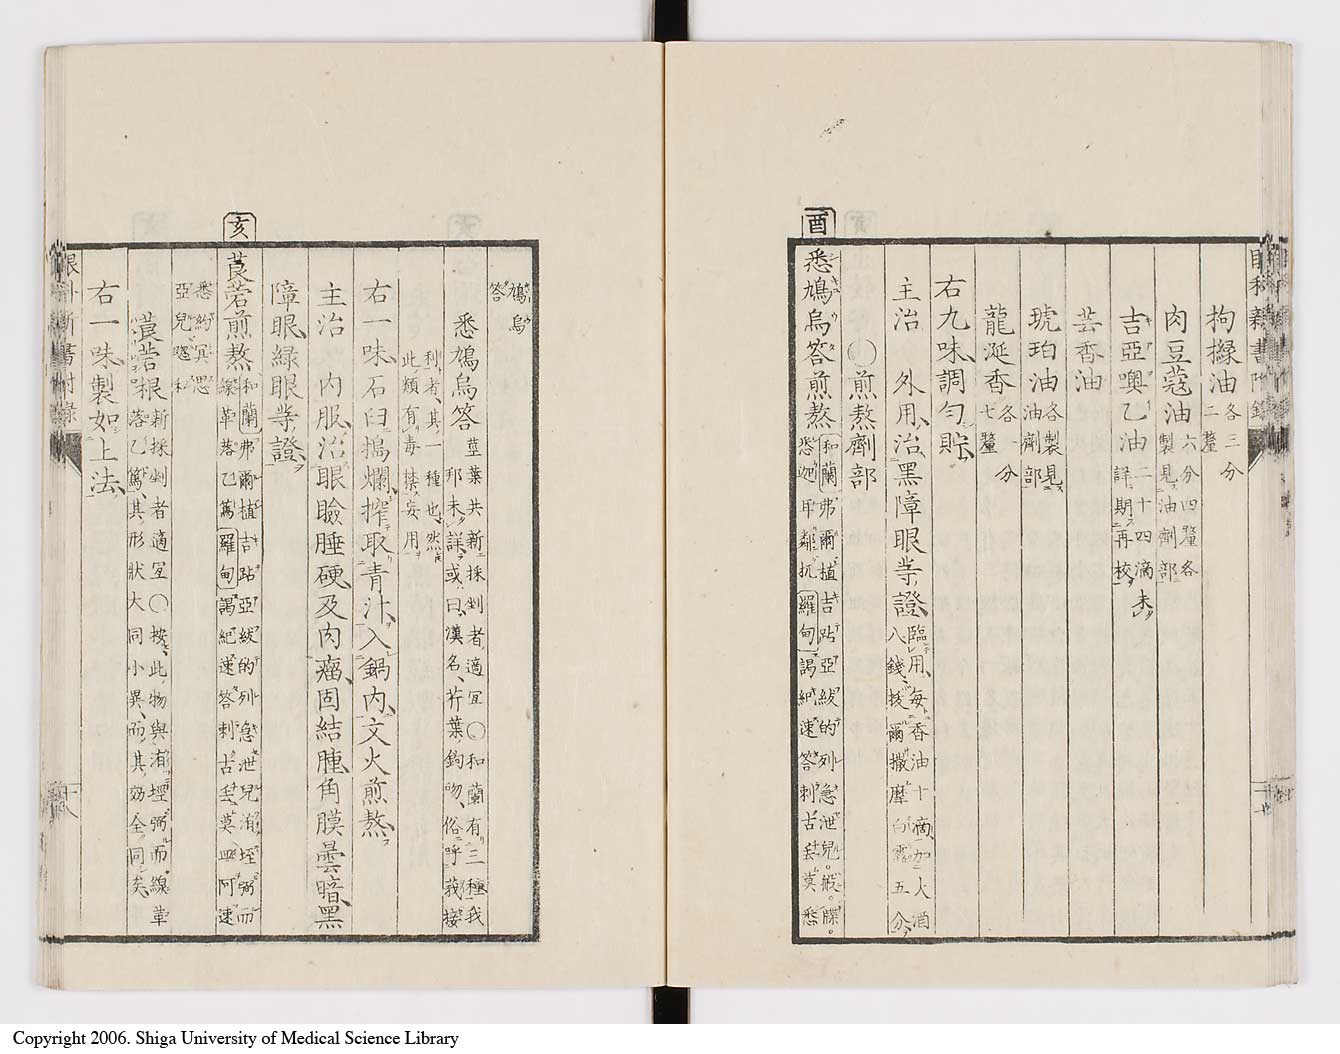 眼科新書附錄
拘櫞油各三分二釐
肉豆蔻油六分四釐各製見油劑部
吉亞噢乙油二十四滴未詳期再校
芸香油
琥珀油各製見油劑部
龍涎香各一分七釐
右九味調勻貯
主治 外用治黑障眼等證臨用每香油十滴加火酒八錢拔爾撒摩白露五分
〇煎熬劑部
酉
悉鳩烏答煎熬和蘭弗爾植吉跕亞紱的列急泄兒
悉迦耳鄰抗羅甸謁紀速答刺古丢莫悉
鳩烏答
悉鳩烏答莖葉共新採剉者適宜〇和蘭有三種我邦未詳或曰漢名芹葉鈎吻俗呼莪接
利者其一種也然此類有毒禁妄用
右一味石臼搗爛搾取青汁入鍋內文火煎熬
主治 內服治眼瞼腫硬及肉瘤固結腫角膜曇暗黑
障眼綠眼等證
亥
莨菪煎熬和蘭弗爾植吉跕亞紱的列急泄兒渮垤弼而
線革落乙篤羅甸謁紀速答刺古丢莫阿速
悉約冥思亞兒
莨菪根新採剉者適宜〇按此物與渮垤弼而線革
落乙篤其形狀大同小異而其効全同矣
右一味製如上法
眼科新書附錄
Copyright 2006. Shiga University of Medical Science Library